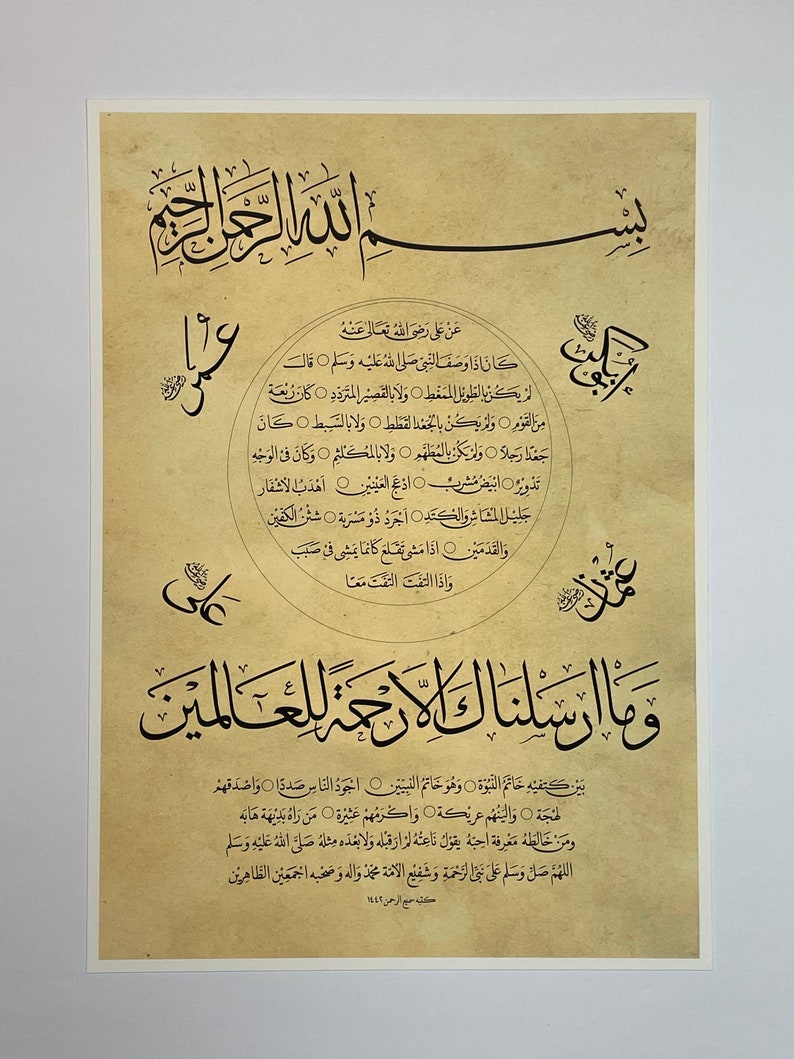 بِسْمِ اللهِ الرَّحْمٰنِ الرَّحِيْمِ
أبي بكر رضي الله عنه
عمر رضي الله عنه
عَنْ عَلى رَضِىَ اللهُ تَعَالىٰ عَنْهُ
كَانَ اِذَا وَصَفَ النَّبِىَّ صَلى اللهُ عَليْهِ وَسَلم ○ قَالَ
لمْ يَكُنْ بِالطَوِيْلِ المُمَغَّطِ ○ وَلَا بِالقَصِيْرِ المُتَرَدِّدِ ○ كَانَ رَبْعَة
مِنَ القَوْمِ ○ وَلمْ يَكُنْ بِالجَعْدِ القَطَطِ ○ وَلَا بِالسَّبِطِ ○ كَانَ
جَعْدًا رَجِلًا ○ وَلمْ يَكُنْ بِالمُطَهَّمِ ○ وَلَا بِالمُكَلْثَمِ ○ وَكَانَ فِى الوَجْهِ
تَدْوِيْرٌ ○ اَبْيَضُ مُشْرَبٌ ○ اَدْعَجُ العَيْنَيْنِ ○ اَهْدَبُ الأَشْفَارِ
جَلِيْلُ المُشَاشِ وَالكَتَدِ ○ اَجْرَدُ ذُوْ مَسْرُبَة ○ شَثْنُ الكَفَّيْنِ
وَالقَدَمَيْنِ ○ اذَا مَشٰى تَقَلعَ كَانَمَا يَمْشِى فِىْ صَبَبَ
وَاذَا التَفَتَ التَفَتَ مَعًا
عثمان رضي الله عنه
علي رضي الله عنه
وَمَا اَرْسَلْنَاكَ اِلَّا رَحْمَةً لِلْعَالَمِيْنَ
بَيْنَ كَتِفَيْهِ خَاتَمُ النُّبُوَّة ○ وَهُوَ خَاتَمُ النَّبِيّيْنَ ○ اَجْوَدُ النَّاسِ صَدْرًا ○ وَاَصْدَقُهُمْ
لهْجَة ○ وَاَليَنُهُم عَرِيْكَة ○ وَاَكْرَمُهُمْ عَشِيْرَة ○ مَنْ رَاهُ بَدِيْهَة هَابَه
ومَنْ خَالطَهُ مَعْرِفَة اَحِبَّهُ يَقوْلُ نَاعِتُهُ لمْ اَرَ قَبْلَه وَلَا بَعْدَه مِثْلَهُ صَلَّى اللهُ عَليْهِ وَسَلَّم
اللهُمَّ صَلِّ وَسَلم عَلىٰ نَبِيِّ الرَّحْمَةِ وَشَفِيْعِ الاُمَّة مُحَمَّدْ وَاٰله وَصَحْبِه اَجْمَعِيْنَ الطَّاهِرِيْنَ
كتبه سميع الرحمن ١٤٤٢